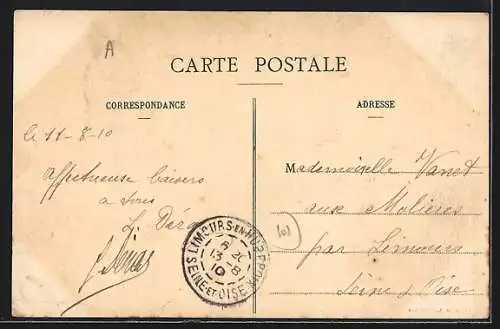 A
CARTE POSTALE
CORRESPONDANCE
ADRESSE
le 11-8-10
Affectueuse baisers
a tous
L.
Mademoiselle Vanet
aux Molières
par Limours
Seine & Oise
LIMOURS-EN-HUREPOIX
13 -8
10
SEINE-ET-OISE